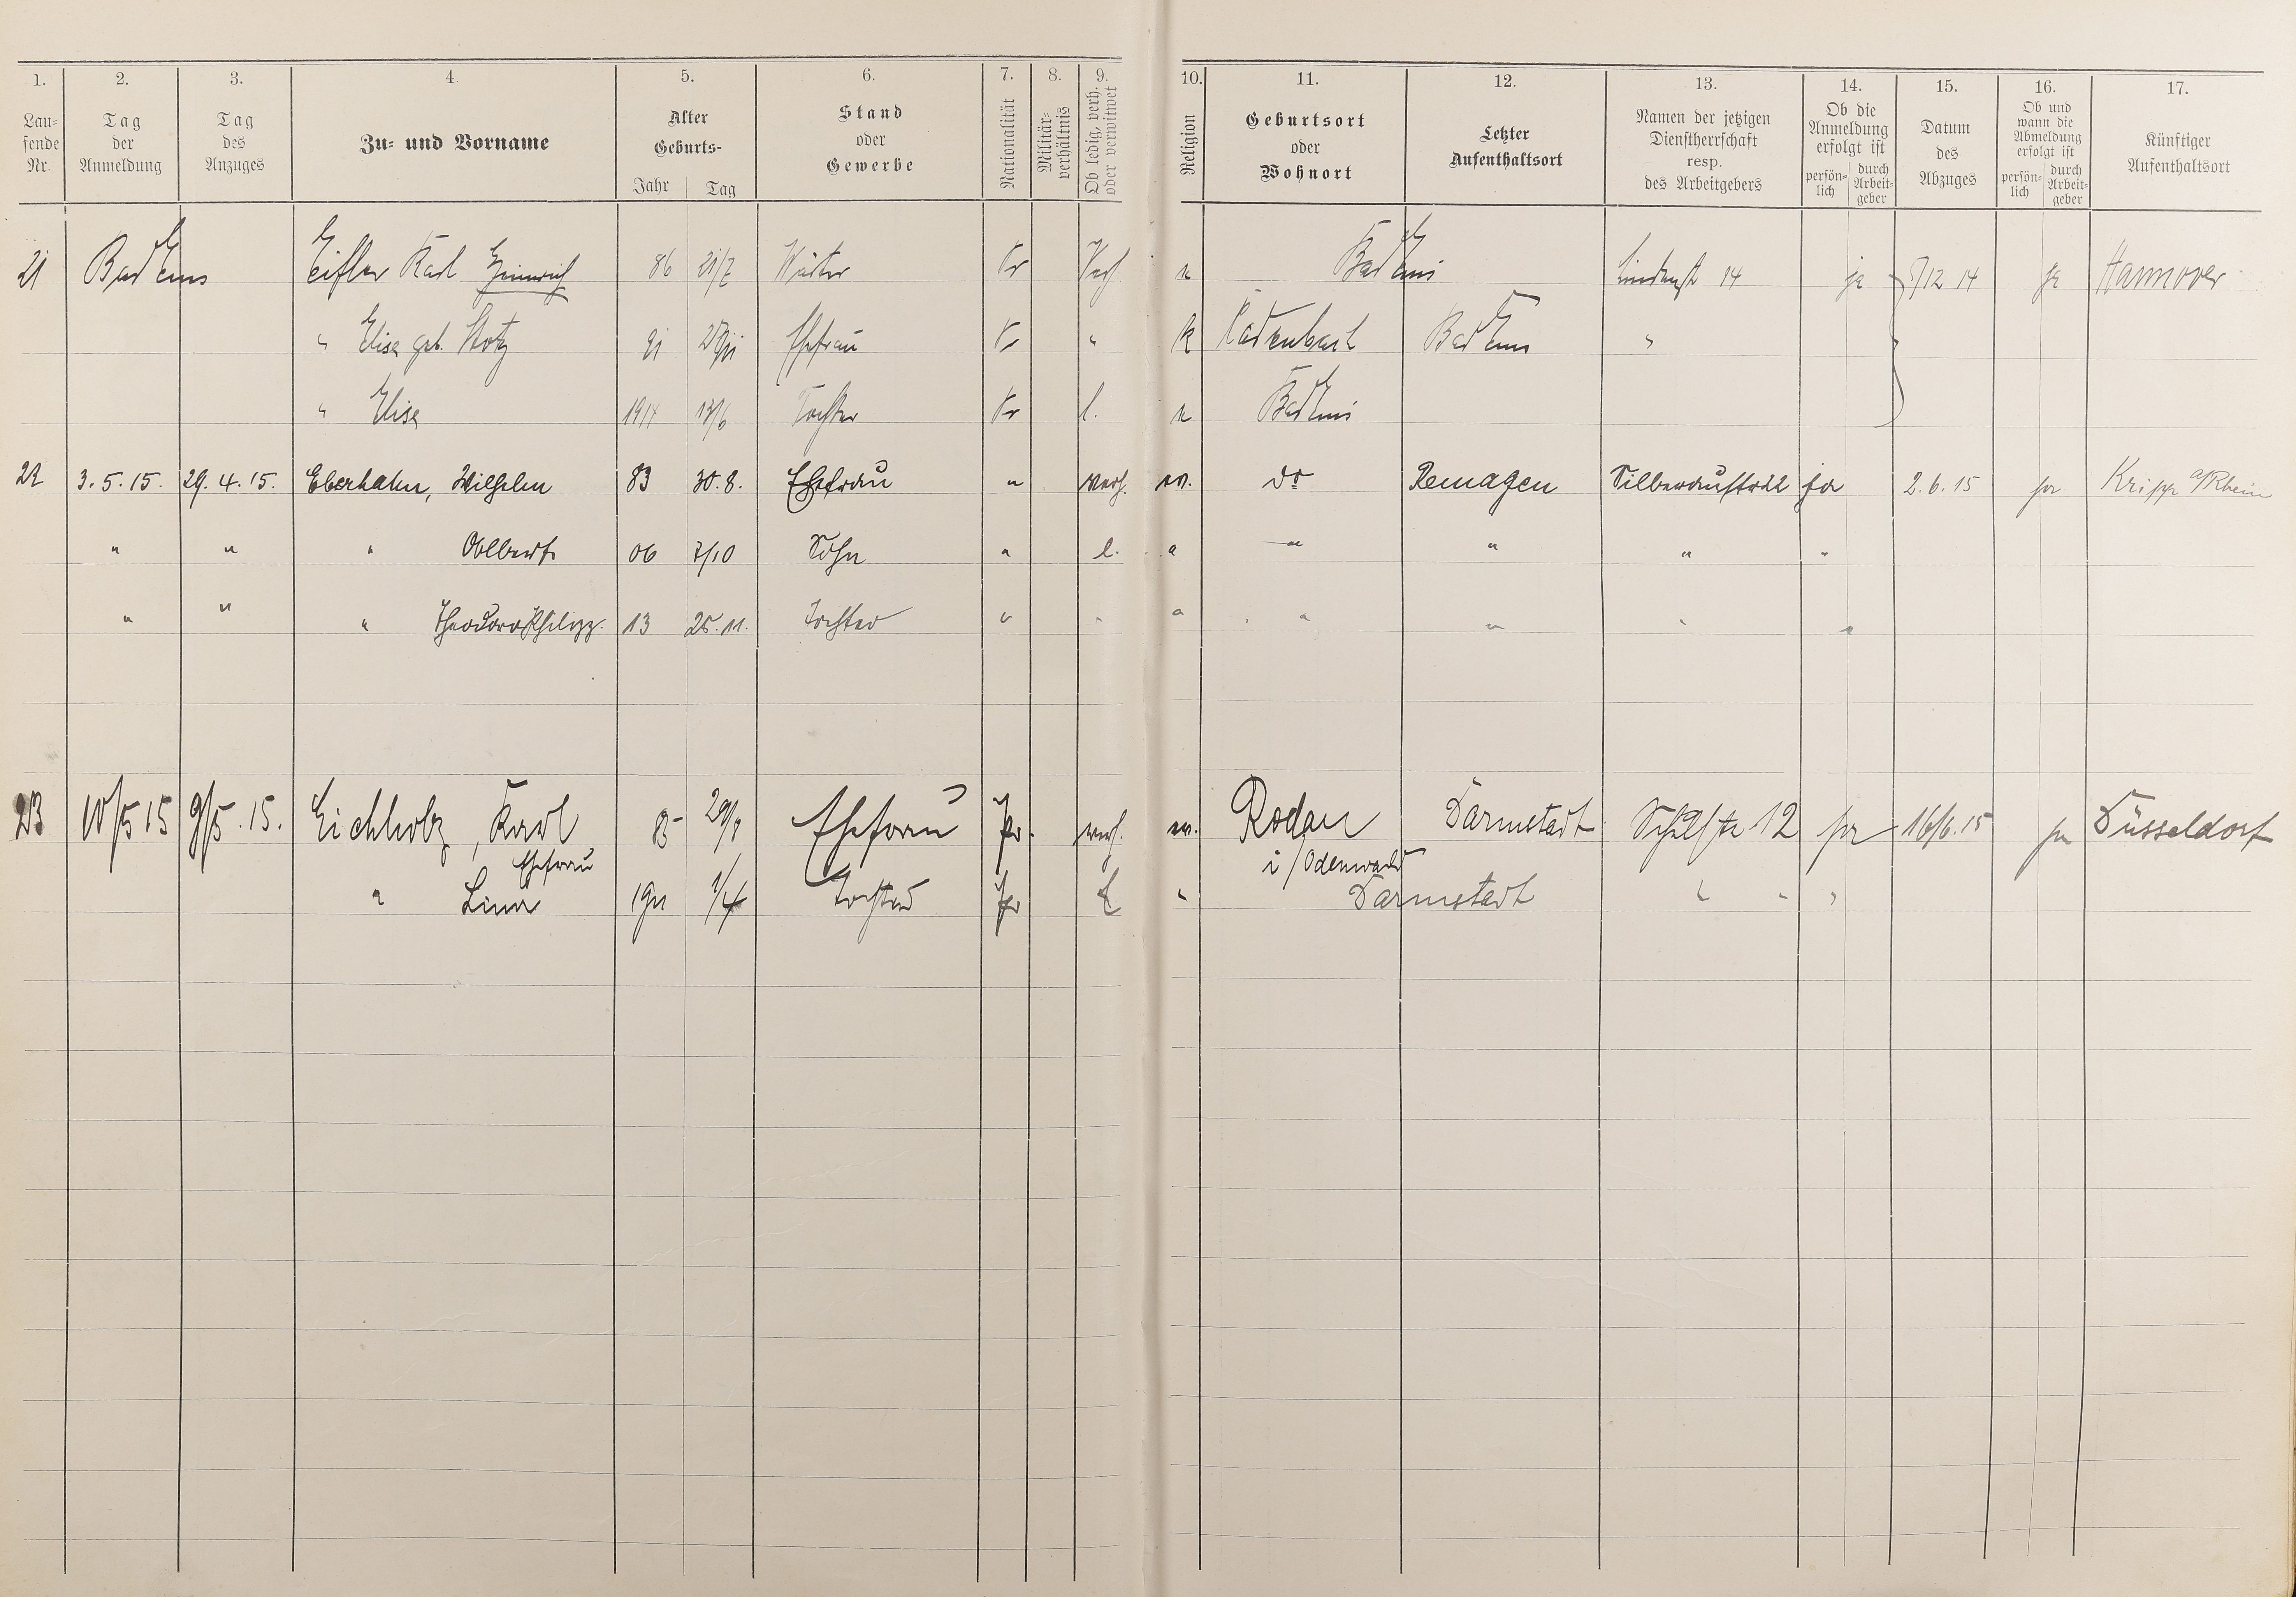 1. 2. 3. 4. 5. 6. 7. 8. 9. 10. 11. 12. 13. 14. 15. 16. 17.
Lau-
fende
Nr.
Tag
der
Anmeldung
Tag
des
Anzuges
Zu- und Vorname
Alter
Geburts-
Jahr Tag
Stand
oder
Gewerbe
Nationalität
Militär-
verhältnis
Ob ledig, verh.
oder verwitwet
Religion
Geburtsort
oder
Wohnort
Letzter
Aufenthaltsort
Namen der jetzigen
Dienstherrschaft
resp.
des Arbeitgebers
Ob die
Anmeldung
erfolgt ist
persön-
lich
durch
Arbeit-
geber
Datum
des
Abzuges
Ob und
wann die
Abmeldung
erfolgt ist
persön-
lich
durch
Arbeit-
geber
Künftiger
Aufenthaltsort
21 Bad Ems Eifler Karl Heinrich 86 21/7 Pr Verh Bad Ems Lindenstr 14 ja 5/12 14 ja Hannover
" Elise geb. Ehefrau Pr " k Kadenbach Bad Ems "
" Elise 1914 13/6 Tochter Pr l. Bad Ems
22 3.5.15. 29.4.15. Eberhahn, Wilhelm 83 30.8. Ehefrau " verh. ev. do Remagen ja 2.6.15 ja Kripp a/Rhein
" " " Albert 06 7/10 Sohn " l. " " " " "
" " " Theodora Philipp. 13 25.11. Tochter " " " " " " "
23 10/5 15 9/5.15. Eichholz, Karl 85 29/9 Ehefrau Pr. verh. ev. Rodau Darmstadt Schulstr 12 ja 16/6.15 ja Düsseldorf
Ehefrau i/Odenwald
" Lina 1/4 Tochter Pr l " Darmstadt " " "